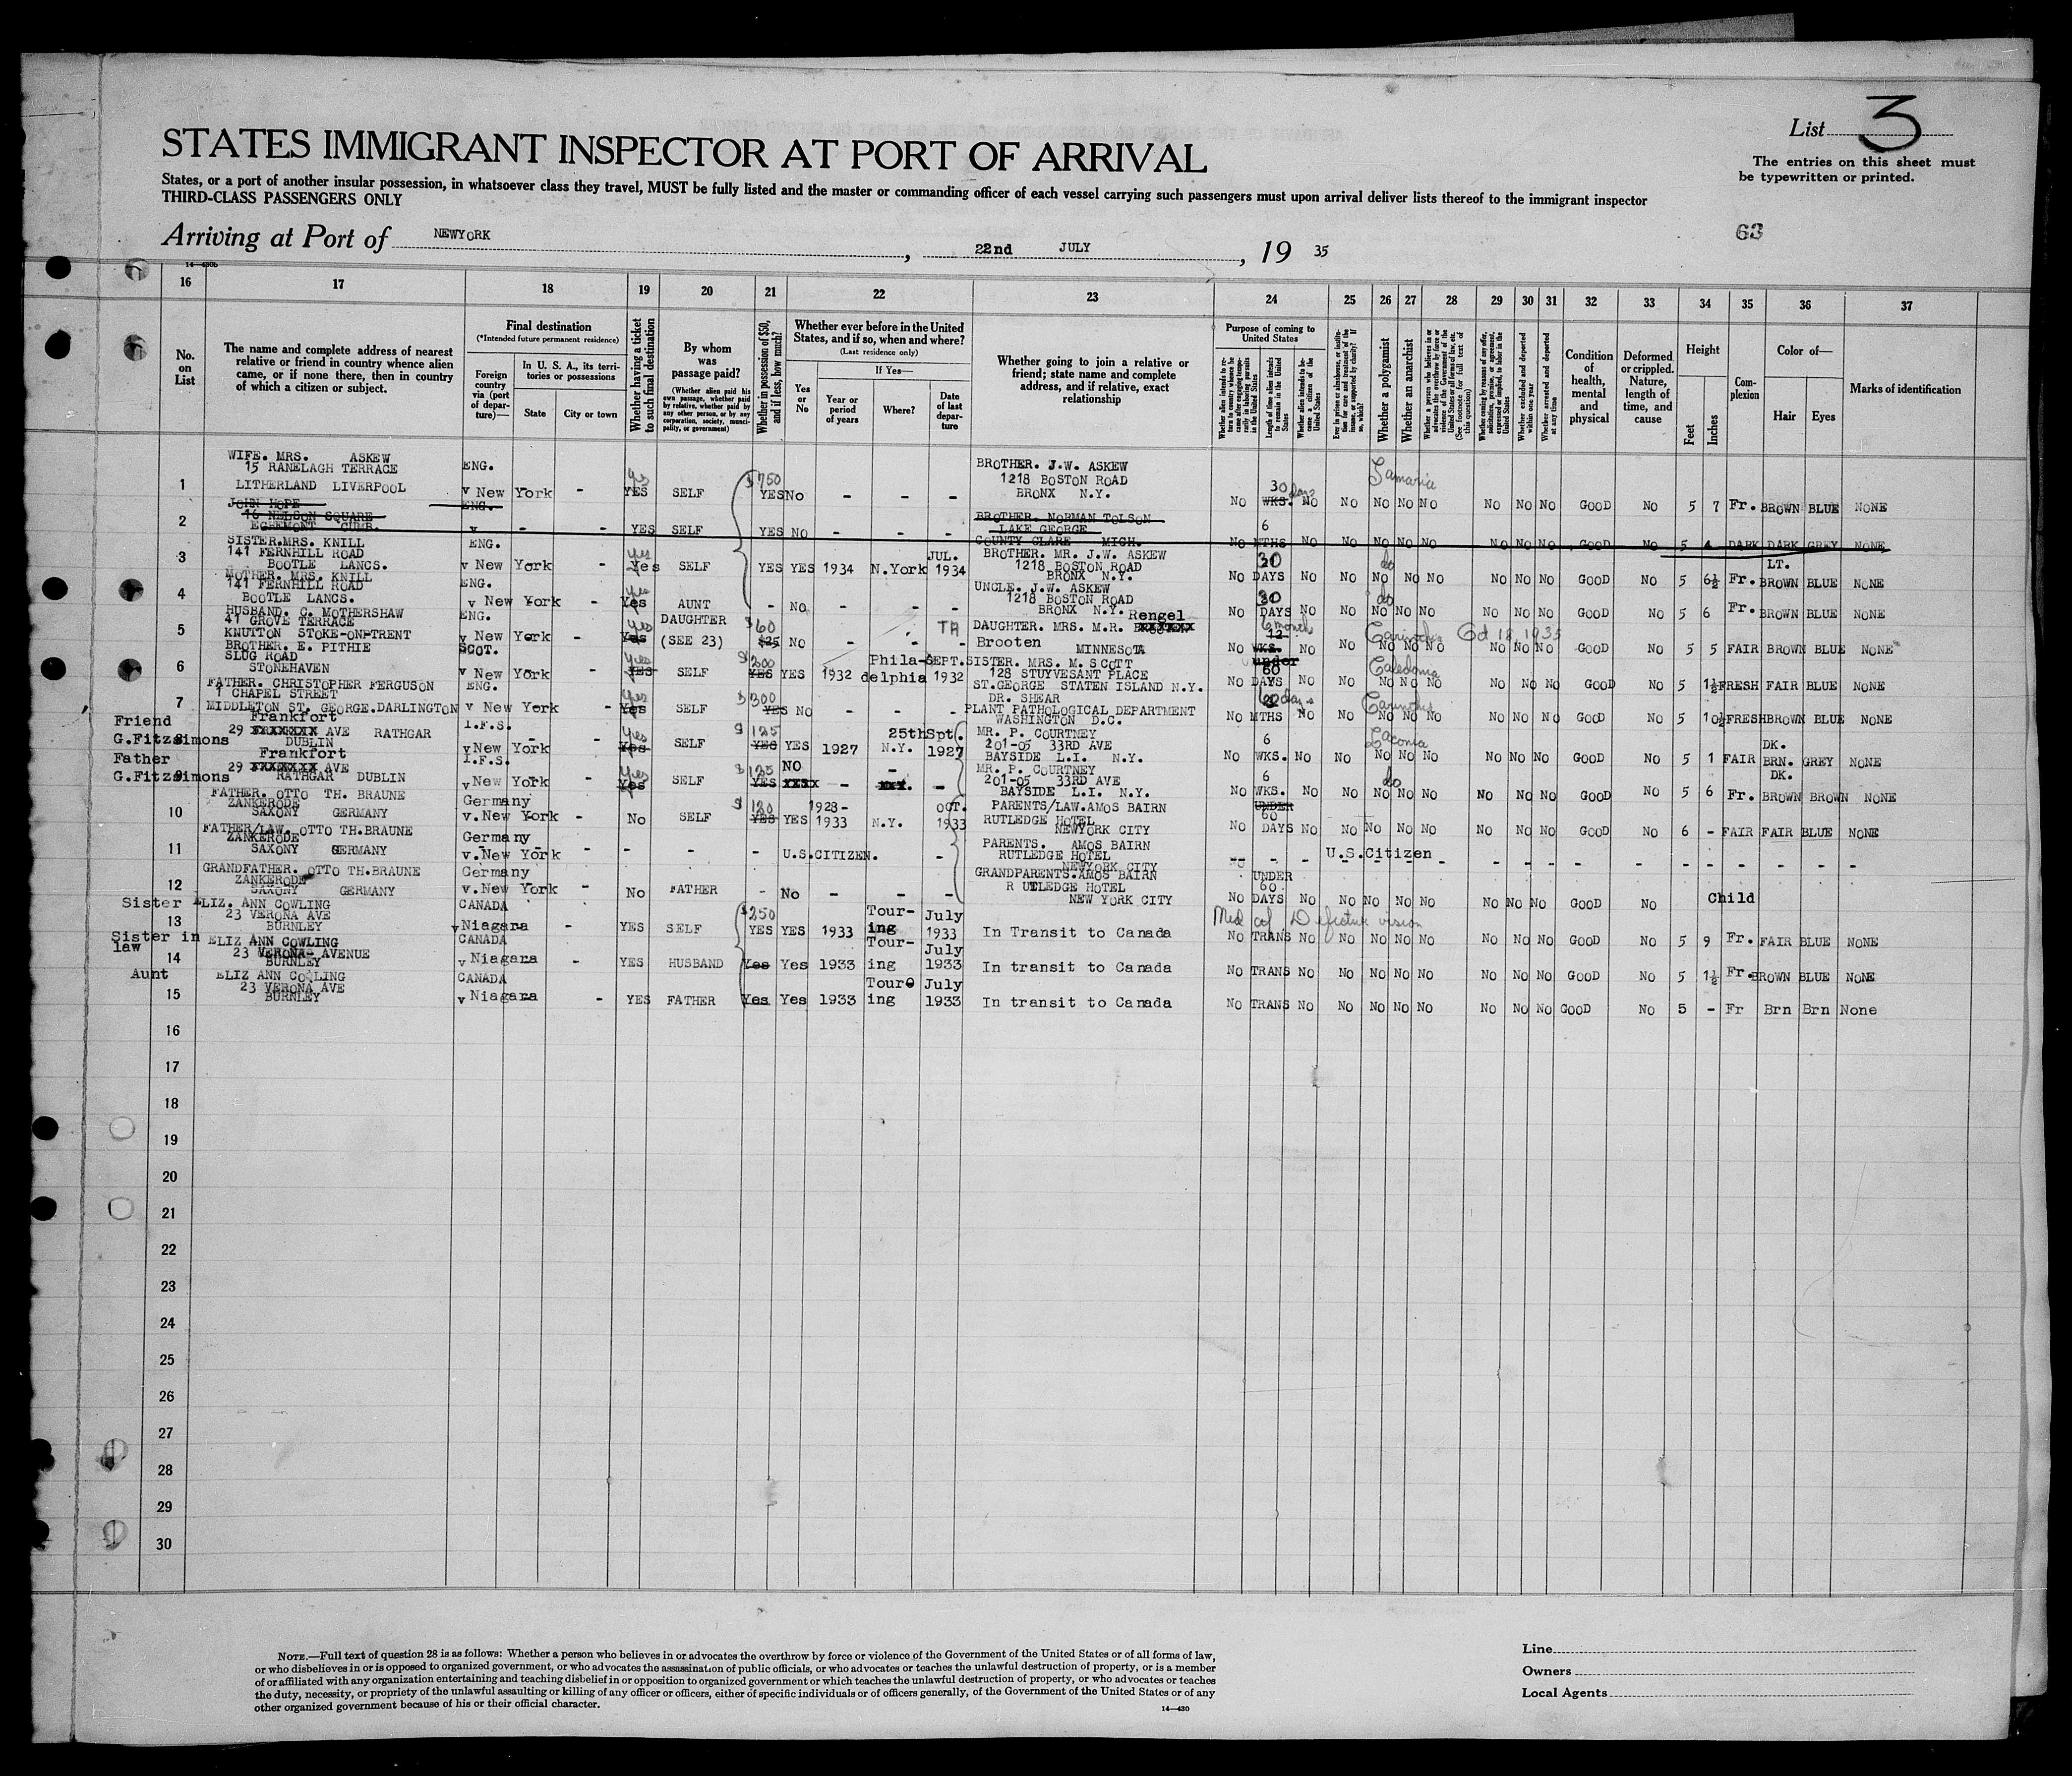 List 3
STATES IMMIGRANT INSPECTOR AT PORT OF ARRIVAL
The entries on this sheet must
be typewritten or printed.
States, or a port of another insular possession, in whatsoever class they travel, MUST be fully listed and the master or commanding officer of each vessel carrying such passengers must upon arrival deliver lists thereof to the immigrant inspector
THIRD-CLASS PASSENGERS ONLY
63
Arriving at Port of NEWYORK, 22nd JULY, 19 35
14-430b
16 17 18 19 20 21 22 23 24 25 26 27 28 29 30 31 32 33 34 35 36 37
No. on List
The name and complete address of nearest relative or friend in country whence alien came, or if none there, then in country of which a citizen or subject.
Final destination
(*Intended future permanent residence)
Foreign country via (port of departure)—
In U. S. A., its territories or possessions
State City or town
Whether having a ticket to such final destination
By whom was passage paid?
(Whether alien paid his own passage, whether paid by relative, whether paid by any other person, or by any corporation, society, municipality, or government)
Whether in possession of $50, and if less, how much?
Whether ever before in the United States, and if so, when and where?
(Last residence only)
Yes or No
If Yes—
Year or period of years Where? Date of last departure
Whether going to join a relative or friend; state name and complete address, and if relative, exact relationship
Purpose of coming to United States
Length of time alien intends to remain in the United States
Whether alien intends to become a citizen of the United States
Whether a polygamist
Whether an anarchist
Whether excluded and deported within one year
Whether arrested and deported at any time
Condition of health, mental and physical
Deformed or crippled. Nature, length of time, and cause
Height
Feet Inches
Complexion
Color of—
Hair Eyes
Marks of identification
1 WIFE. MRS. ASKEW 15 RANELAGH TERRACE LITHERLAND LIVERPOOL ENG. v New York - yes YES SELF $750 YES No - - - BROTHER. J.W. ASKEW 1218 BOSTON ROAD BRONX N.Y. No 30 WKS. days No No No No No No No No GOOD No 5 7 Fr. BROWN BLUE NONE
Samaria
2 JOHN HOPE 16 NELSON SQUARE EGREMONT CUMB. ENG. v - - YES SELF YES No - - - BROTHER. NORMAN TOLSON LAKE GEORGE COUNTY CLARE MICH. No 6 MTHS No No No No No No No No GOOD No 5 4 DARK DARK GREY NONE
3 SISTER.MRS. KNILL 141 FERNHILL ROAD BOOTLE LANCS. ENG. v New York - yes Yes SELF YES YES 1934 N.York JUL. 1934 BROTHER. MR. J.W. ASKEW 1218 BOSTON ROAD BRONX N.Y. No 30 DAYS No No do No No No No No No GOOD No 5 6½ Fr. LT. BROWN BLUE NONE
4 MOTHER. MRS. KNILL 141 FERNHILL ROAD BOOTLE LANCS. ENG. v New York - yes Yes AUNT - No - - - UNCLE. J.W. ASKEW 1218 BOSTON ROAD BRONX N.Y. No 30 DAYS No No do No No No No No No GOOD No 5 6 Fr. BROWN BLUE NONE
5 HUSBAND. C. MOTHERSHAW 41 GROVE TERRACE KNUTTON STOKE-ON-TRENT ENG. v New York - yes Yes DAUGHTER (SEE 23) $60 $25 No - - - DAUGHTER. MRS. M.R. Rengel Brooten MINNESOTA No 6 months 12 WKS. No No No No No No No No GOOD No 5 5 FAIR BROWN BLUE NONE
Carinthia Oct 18, 1935
6 BROTHER. E. PITHIE SLUG ROAD STONEHAVEN SCOT. v New York - yes YES SELF $200 YES YES 1932 Philadelphia SEPT. 1932 SISTER. MRS. M. SCOTT 128 STUYVESANT PLACE ST.GEORGE STATEN ISLAND N.Y. No under 60 DAYS No No No No No No No No GOOD No 5 1½ FRESH FAIR BLUE NONE
Caledonia
7 FATHER. CHRISTOPHER FERGUSON 1 CHAPEL STREET MIDDLETON ST. GEORGE.DARLINGTON ENG. v New York - yes Yes SELF $300 YES No - - - DR. SHEAR PLANT PATHOLOGICAL DEPARTMENT WASHINGTON D.C. No 60 days MTHS No No No No No No No No GOOD No 5 10½ FRESH BROWN BLUE NONE
Carinthia
8 Friend G.Fitzsimons 29 Frankfort AVE RATHGAR DUBLIN I.F.S. v New York - yes Yes SELF $125 YES YES 1927 N.Y. 25thSpt. 1927 MR. P. COURTNEY 201-05 33RD AVE BAYSIDE L.I. N.Y. No 6 WKS. No No No No No No No No GOOD No 5 1 FAIR DK. BRN. GREY NONE
Laconia
9 Father G.Fitzsimons 29 Frankfort AVE RATHGAR DUBLIN I.F.S. v New York - yes Yes SELF $125 YES NO - - - MR. P. COURTNEY 201-05 33RD AVE BAYSIDE L.I. N.Y. No 6 WKS. No No do No No No No No No GOOD No 5 6 Fr. DK. BROWN BROWN NONE
10 FATHER. OTTO TH. BRAUNE ZANKERODE SAXONY GERMANY Germany v. New York - No SELF $120 YES YES 1928-1933 N.Y. OCT. 1933 PARENTS/LAW.AMOS BAIRN RUTLEDGE HOTEL NEWYORK CITY No UNDER 60 DAYS No No No No No No No No GOOD No 6 - FAIR FAIR BLUE NONE
11 FATHER/LAW. OTTO TH.BRAUNE ZANKERODE SAXONY GERMANY Germany v. New York - - - - U.S.CITIZEN. - PARENTS. AMOS BAIRN RUTLEDGE HOTEL NEWYORK CITY U.S.Citizen
12 GRANDFATHER. OTTO TH.BRAUNE ZANKERODE SAXONY GERMANY Germany v. New York - No FATHER - No - - - GRANDPARENTS.AMOS BAIRN RUTLEDGE HOTEL NEW YORK CITY No UNDER 60 DAYS No No No No No No No No GOOD No Child
13 Sister ELIZ. ANN COWLING 23 VERONA AVE BURNLEY CANADA v Niagara - YES SELF $250 YES YES 1933 Touring July 1933 In Transit to Canada No TRANS No No No No No No No No GOOD No 5 9 Fr. FAIR BLUE NONE
Med cef Defective vision
14 Sister in law ELIZ ANN COWLING 23 VERONA- AVENUE BURNLEY CANADA v Niagara - YES HUSBAND Yes Yes 1933 Touring July 1933 In transit to Canada No TRANS No No No No No No No No GOOD No 5 1½ Fr. BROWN BLUE NONE
15 Aunt ELIZ ANN COWLING 23 VERONA AVE BURNLEY CANADA v Niagara - YES FATHER Yes Yes 1933 Touring July 1933 In transit to Canada No TRANS No No No No No No No No GOOD No 5 - Fr Brn Brn None
16
17
18
19
20
21
22
23
24
25
26
27
28
29
30
NOTE.—Full text of question 28 is as follows: Whether a person who believes in or advocates the overthrow by force or violence of the Government of the United States or of all forms of law,
or who disbelieves in or is opposed to organized government, or who advocates the assassination of public officials, or who advocates or teaches the unlawful destruction of property, or is a member
of or affiliated with any organization entertaining and teaching disbelief in or opposition to organized government or which teaches the unlawful destruction of property, or who advocates or teaches
the duty, necessity, or propriety of the unlawful assaulting or killing of any officer or officers, either of specific individuals or of officers generally, of the Government of the United States or of any
other organized government because of his or their official character.
14-430
Line
Owners
Local Agents